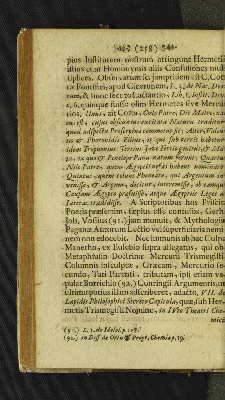 (258)
pius Institutum nostrum attingunt Hermetis
istius cum Homonymis aliis Confusiones mul-
tiplices. Observatum sc. jampridem est C. Cot-
ta Pontifici, apud Ciceronem, L. 3. de Nat. Deo-
rum, & hunc secuto Lactantio, Lib. 1. Instit. Div.
c. 6. quinque fuisse olim Hermetes sive Mercu-
rios. Unus, ait Cotta, Cœlo Patre, Die Matre, na-
tus est, cujus obscœnius excitata Natura traditur,
quod adspectu Proserpinæ commotus sit; Alter, Valen-
tis & Phoronidis Filius, is qui sub terris habetur
idem Trophonius. Tertius Jove Tertio genitus, & Ma-
ja, ex quo & Penelope Pana natum ferunt; Quartus
Nilo Patre, quem Ægyptii nefas habent nominare;
Quintus, quem colunt Pheneatæ, qui Argum inter-
emisse, & Argum, dicitur, interemisse, ob eamque
Causam Ægypto præfuisse, atque Ægyptiis Leges &
Literas tradidisse. A Scriptoribus hos Priscis,
Poetis præsertim, sæpius esse confusos, Gerh.
Joh. Vossius (91.) jam monuit, & Mythologico-
Paganæ Autorum Lectio vel superficiaria nemi-
nem non edocebit. Nec immunis ab hac Culpa
Manetho, ex Eusebio supra allegatus, qui ob
Metaphrasin Doctrinæ Mercurii Trismegisti
Columnis insculptæ, Græcam, Mercurio se-
cundo, Tati Parenti, tributam, ipsi etiam va-
pulat Borrichio (92.) Concingii Argumentis, ut
ultimo potius illam adscriberet, adacto. VII. de
Lapidis Philosophici Secreto Capitula, quæ, sub Her-
metis Trismegisti Nomine, in IVto Theatri Che-
mici
(91.) L. 1. de Idolol. p. 158.
(92.) in Diss. de Ortu & Progr. Chemiæ p. 19.